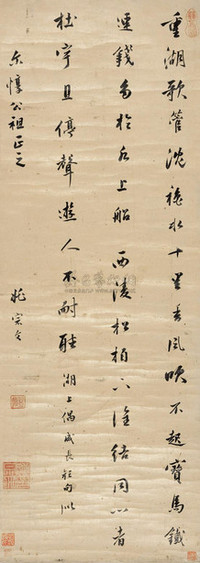 重湖歌管沈
水十里春風吹不起寶馬鐵
連錢多於水上船西陵松柏下誰結同心者
杜宇且停聲遊人不耐聽湖上偶成長短句似
尔惇公祖正之
宗